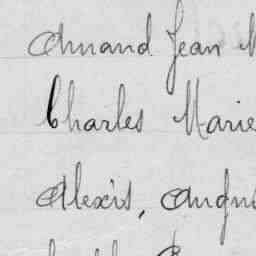 Armand Jean M
Charles Marie
Alexis, Augus